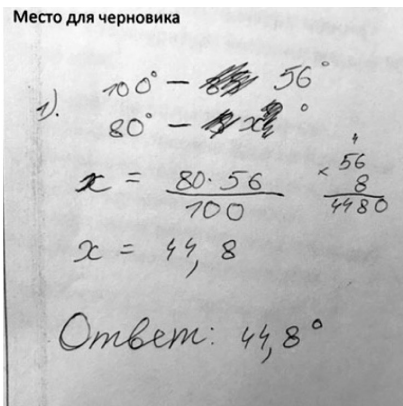 Место для черновика
1). 100° — 56°
80° — x°
x = 80 · 56 / 100
× 56
8
4480
4
x = 44,8
Ответ: 44,8°